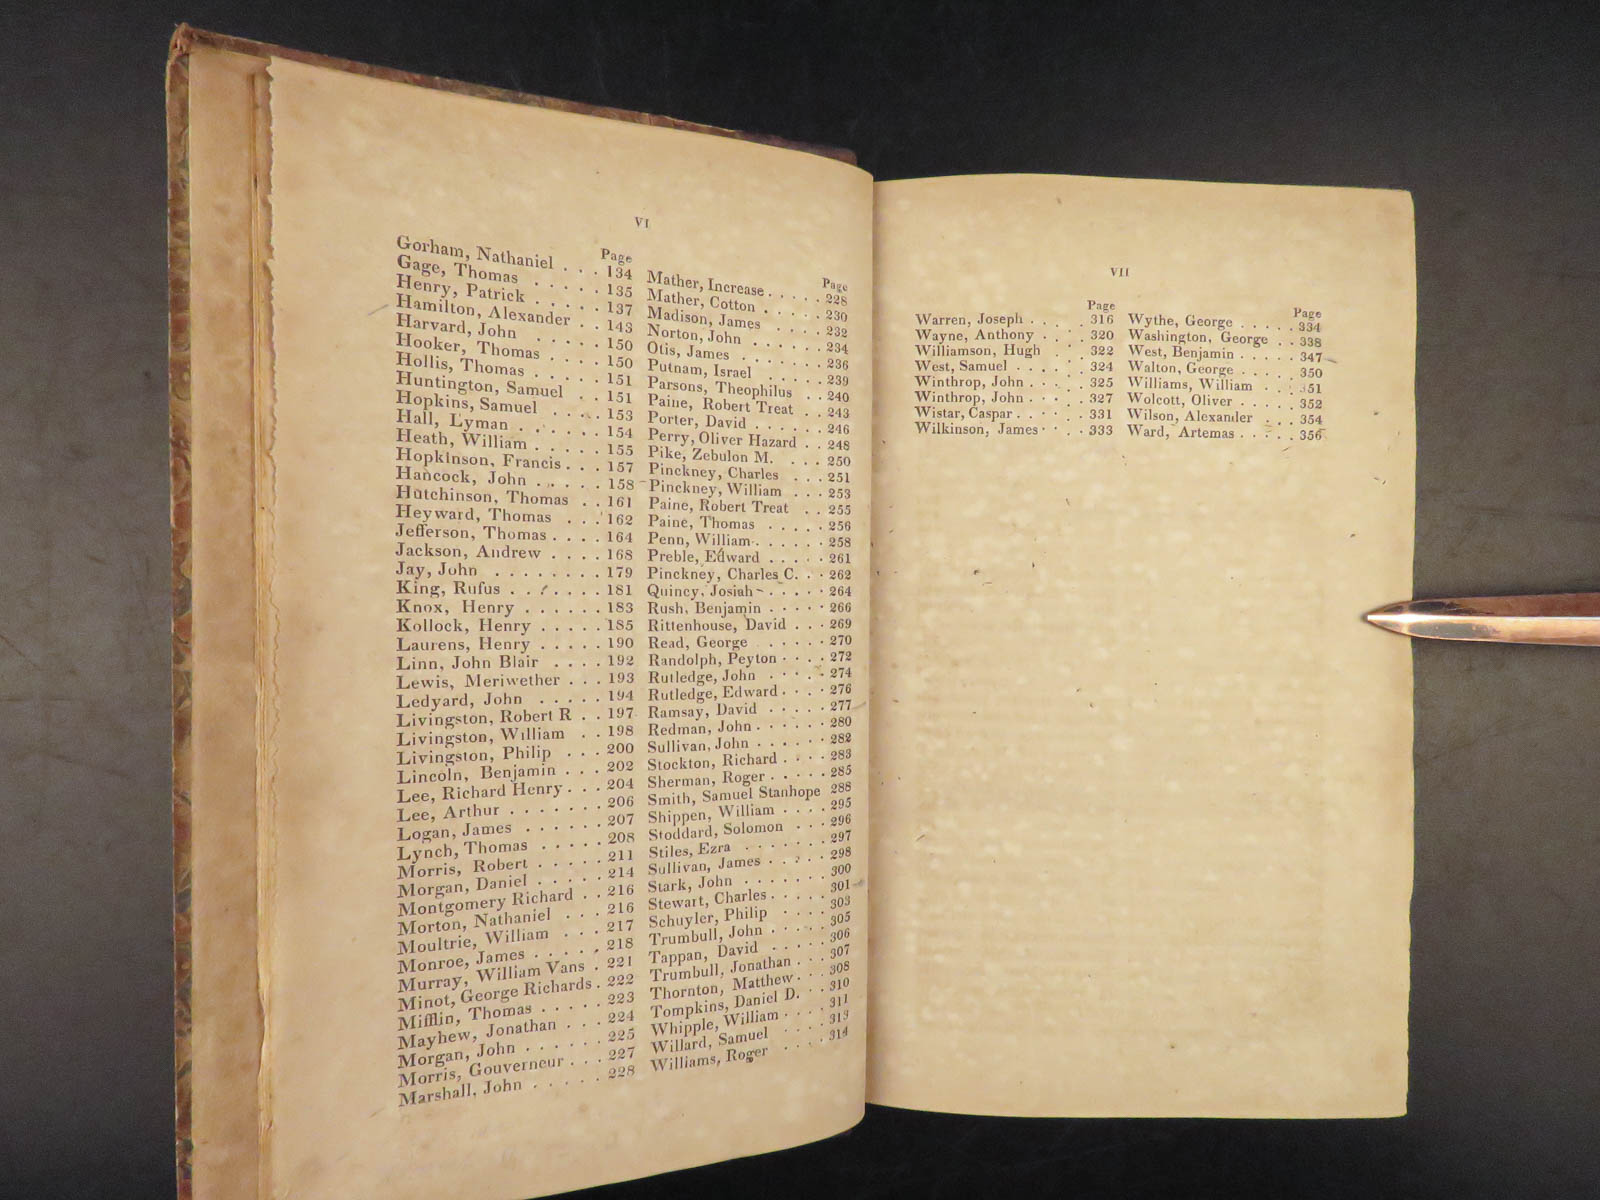 VI
Page
Gorham, Nathaniel . . . 134
Gage, Thomas . . . . . 135
Henry, Patrick . . . . . 137
Hamilton, Alexander . . 143
Harvard, John . . . . . 150
Hooker, Thomas . . . . 150
Hollis, Thomas . . . . . 151
Huntington, Samuel . . 151
Hopkins, Samuel . . . . 153
Hall, Lyman . . . . . . 154
Heath, William . . . . . 155
Hopkinson, Francis . . . 157
Hancock, John . . . . . 158
Hutchinson, Thomas . . 161
Heyward, Thomas . . . 162
Jefferson, Thomas . . . . 164
Jackson, Andrew . . . . 168
Jay, John . . . . . . . . 179
King, Rufus . . . . . . . 181
Knox, Henry . . . . . . 183
Kollock, Henry . . . . . 185
Laurens, Henry . . . . . 190
Linn, John Blair . . . . 192
Lewis, Meriwether . . . 193
Ledyard, John . . . . . 194
Livingston, Robert R . . 197
Livingston, William . . 198
Livingston, Philip . . . 200
Lincoln, Benjamin . . . 202
Lee, Richard Henry . . . 204
Lee, Arthur . . . . . . . 206
Logan, James . . . . . . 207
Lynch, Thomas . . . . . 208
Morris, Robert . . . . . 211
Morgan, Daniel . . . . . 214
Montgomery Richard . . 216
Morton, Nathaniel . . . 216
Moultrie, William . . . 217
Monroe, James . . . . . 218
Murray, William Vans . 221
Minot, George Richards . 222
Mifflin, Thomas . . . . 223
Mayhew, Jonathan . . . 224
Morgan, John . . . . . . 225
Morris, Gouverneur . . . 227
Marshall, John . . . . . 228
Page
Mather, Increase . . . . . 228
Mather, Cotton . . . . . 230
Madison, James . . . . 232
Norton, John . . . . . . 234
Otis, James . . . . . . 236
Putnam, Israel . . . . . 239
Parsons, Theophilus . . 240
Paine, Robert Treat . . 243
Porter, David . . . . . . 246
Perry, Oliver Hazard . . 248
Pike, Zebulon M. . . . 250
Pinckney, Charles . . . 251
Pinckney, William . . . 253
Paine, Robert Treat . . 255
Paine, Thomas . . . . . 256
Penn, William . . . . . . 258
Preble, Edward . . . . . 261
Pinckney, Charles C. . . 262
Quincy, Josiah . . . . . 264
Rush, Benjamin . . . . . 266
Rittenhouse, David . . . 269
Read, George . . . . . 270
Randolph, Peyton . . . . 272
Rutledge, John . . . . . 274
Rutledge, Edward . . . . 276
Ramsay, David . . . . . 277
Redman, John . . . . . . 280
Sullivan, John . . . . . . 282
Stockton, Richard . . . . 283
Sherman, Roger . . . . . 285
Smith, Samuel Stanhope 288
Shippen, William . . . . 295
Stoddard, Solomon . . . 296
Stiles, Ezra . . . . . . . 297
Sullivan, James . . . . . 298
Stark, John . . . . . . . 300
Stewart, Charles . . . . . 301
Schuyler, Philip . . . . 303
Trumbull, John . . . . . 305
Tappan, David . . . . . 306
Trumbull, Jonathan . . . 307
Thornton, Matthew . . . 308
Tompkins, Daniel D. . . 310
Whipple, William . . . . 311
Willard, Samuel . . . . 313
Williams, Roger . . . . 314
VII
Page
Warren, Joseph . . . . . 316
Wayne, Anthony . . . . 320
Williamson, Hugh . . . 322
West, Samuel . . . . . 324
Winthrop, John . . . . 325
Winthrop, John . . . . . 327
Wistar, Caspar . . . . . . 331
Wilkinson, James . . . . 333
Page
Wythe, George . . . . . 334
Washington, George . . 338
West, Benjamin . . . . . 347
Walton, George . . . . . 350
Williams, William . . . 351
Wolcott, Oliver . . . . . 352
Wilson, Alexander . . . 354
Ward, Artemas . . . . . 356